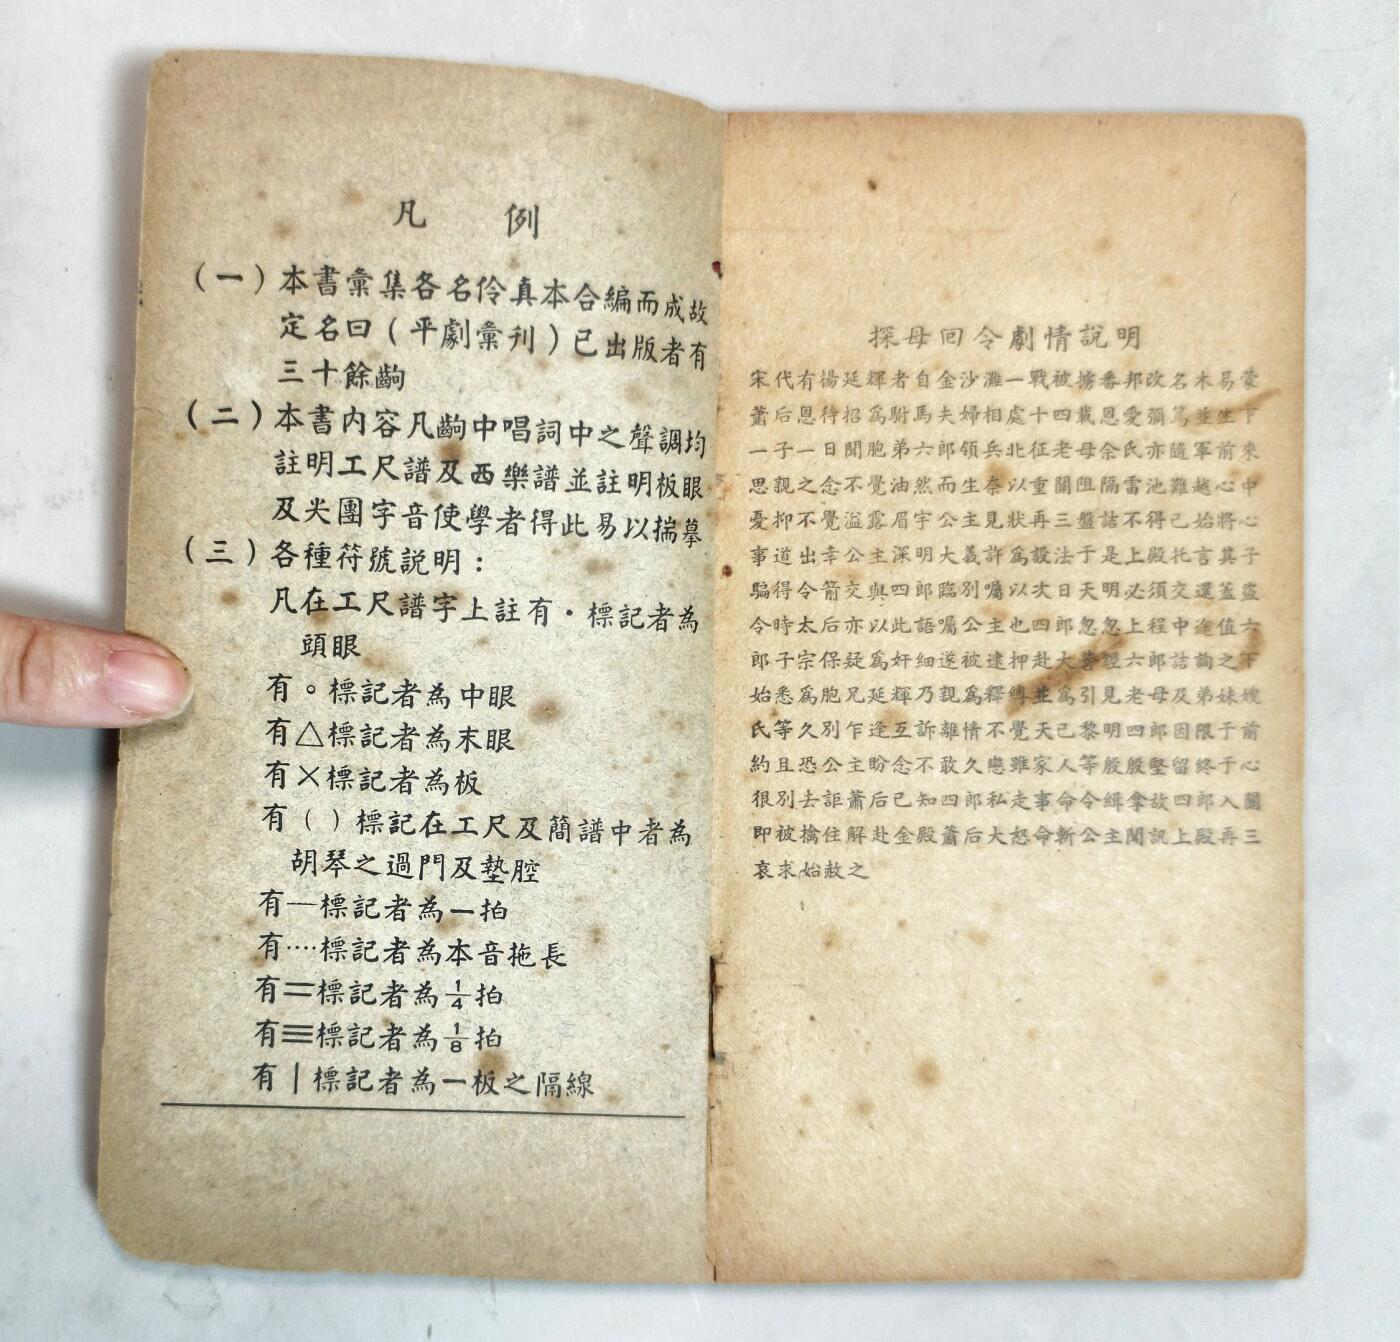 凡例
(一)本書彙集各名伶真本合編而成故
定名曰(平劇彙刊)已出版者有
三十餘齣
(二)本書内容凡齣中唱詞中之聲調均
註明工尺譜及西樂譜並註明板眼
及尖團字音使學者得此易以揣摹
(三)各種符號説明:
凡在工尺譜字上註有·標記者為
頭眼
有。標記者為中眼
有△標記者為末眼
有×標記者為板
有()標記在工尺及簡譜中者為
胡琴之過門及墊腔
有—標記者為一拍
有····標記者為本音拖長
有二標記者為1/4拍
有三標記者為1/8拍
有|標記者為一板之隔線
探母回令劇情説明
宋代有楊延輝者自金沙灘一戰被擄番邦改名木易蒙
蕭后恩待招爲駙馬夫婦相處十四載恩愛彌篤並生下
一子一日聞胞弟六郎領兵北征老母余氏亦隨軍前來
思親之念不覺油然而生奈以重關阻隔雷池難越心中
憂抑不覺溢露眉宇公主見狀再三盤詰不得已始將心
事道出幸公主深明大義許爲設法于是上殿托言其子
騙得令箭交與四郎臨別囑以次日天明必須交還蓋盜
令時太后亦以此語囑公主也四郎忽忽上程中途值六
郎子宗保疑爲奸細遂被逮押赴大營經六郎詰詢之下
始悉爲胞兄延輝乃親爲釋縛並爲引見老母及弟妹嫂
氏等久別乍逢互訴離情不覺天已黎明四郎因限于前
約且恐公主盼念不敢久戀雖家人等般般堅留終于心
狠別去詎蕭后已知四郎私走事命令緝拿故四郎入關
即被擒住解赴金殿蕭后大怒命斬公主聞訊上殿再三
哀求始赦之